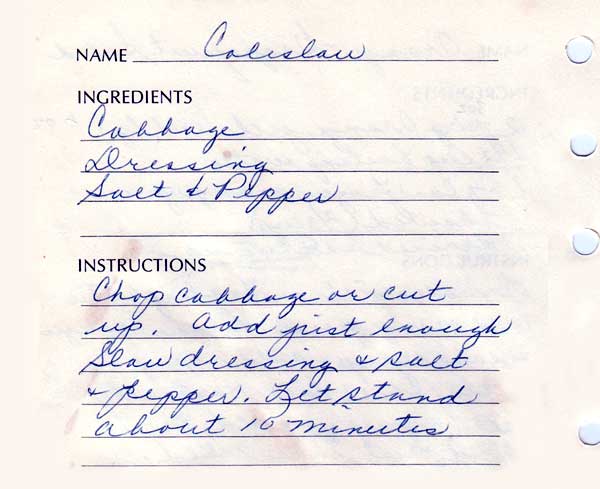 NAME Coleslaw
INGREDIENTS
Cabbage
Dressing
Salt & Pepper
INSTRUCTIONS
Chop cabbage or cut
up. Add just enough
Slaw dressing & salt
& pepper. Let stand
about 10 minutes